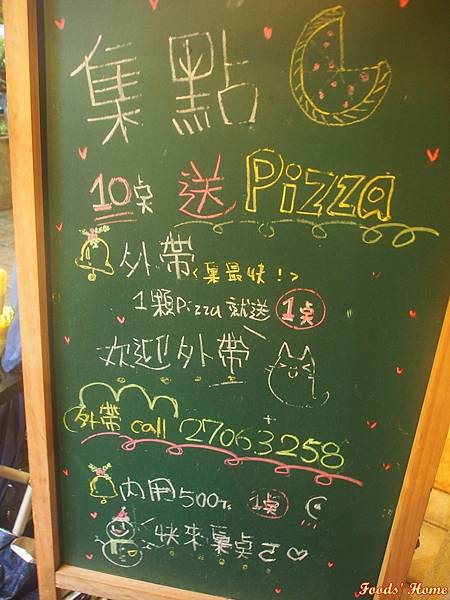 集點
10点 送 Pizza
外帶<集最快!>
1顆Pizza就送 1点
欢迎外帶
外帶 call 27063258
內用500元 1点
快來集点ㄛ♡
Foods' Home